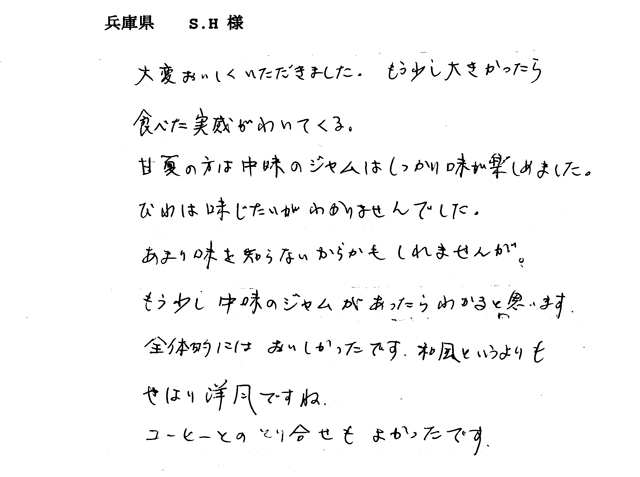 兵庫県 S.H 様
大変おいしくいただきました。もう少し大きかったら
食べた実感がわいてくる。
甘夏の方は中味のジャムはしっかり味が楽しめました。
びわは味じたいがわかりませんでした。
あまり味を知らないからかもしれませんが。
もう少し中味のジャムがあったらわかると思います.
全体的にはおいしかったです.和風というよりも
やはり洋風ですね.
コーヒーとのとり合せもよかったです.